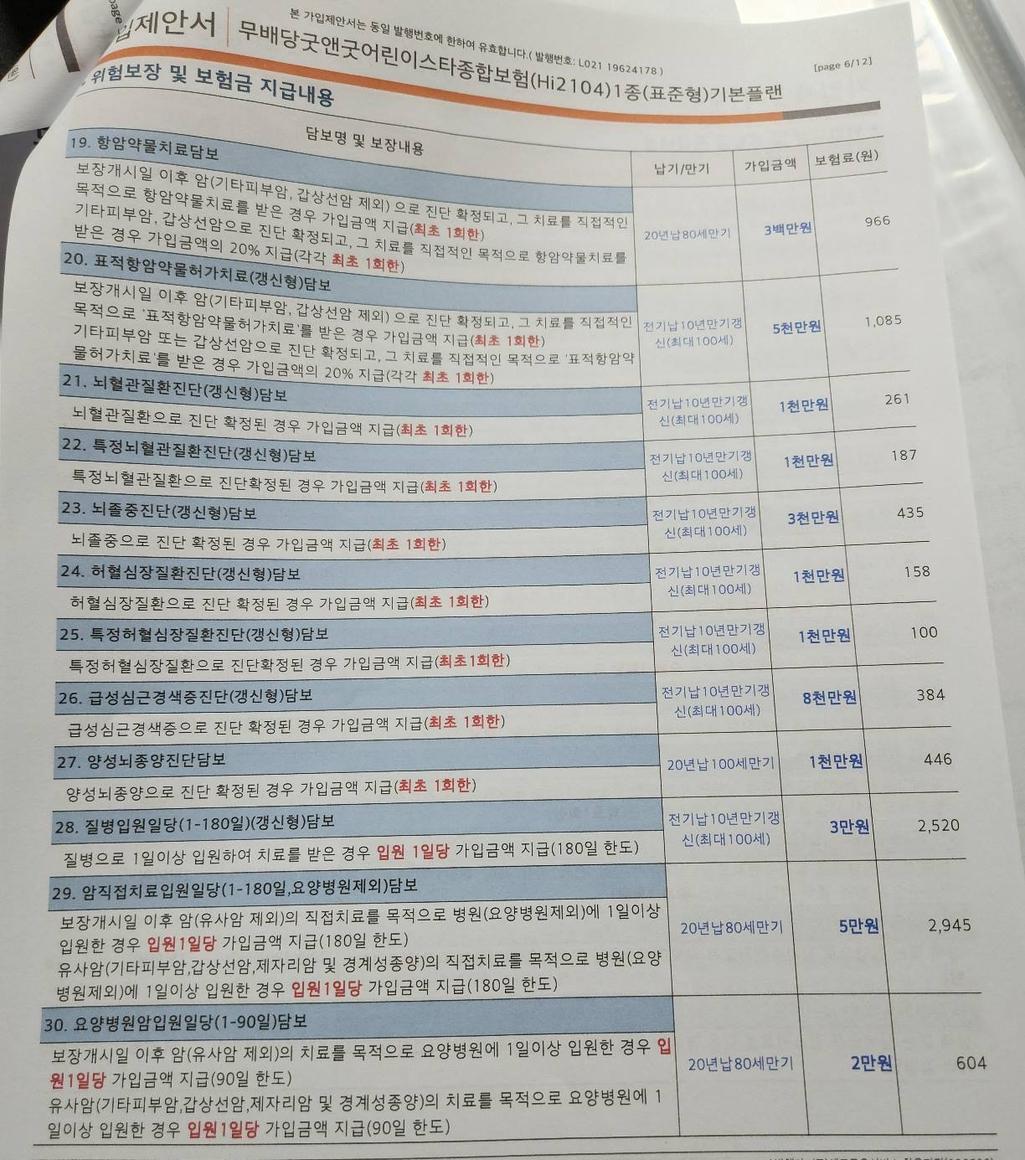 입제안서
본 가입제안서는 동일 발행번호에 한하여 유효합니다.( 발행번호: L021 19624178 )
무배당굿앤굿어린이스타종합보험(Hi2104)1종(표준형)기본플랜
[page 6/12]
위험보장 및 보험금 지급내용
담보명 및 보장내용
납기/만기
가입금액
보험료(원)
19. 항암약물치료담보
보장개시일 이후 암(기타피부암, 갑상선암 제외) 으로 진단 확정되고, 그 치료를 직접적인
목적으로 항암약물치료를 받은 경우 가입금액 지급(최초 1회한)
기타피부암, 갑상선암으로 진단 확정되고, 그 치료를 직접적인 목적으로 항암약물치료를
받은 경우 가입금액의 20% 지급(각각 최초 1회한)
20년납80세만기
3백만원
966
20. 표적항암약물허가치료(갱신형)담보
보장개시일 이후 암(기타피부암, 갑상선암 제외) 으로 진단 확정되고, 그 치료를 직접적인
목적으로 '표적항암약물허가치료'를 받은 경우 가입금액 지급(최초 1회한)
기타피부암 또는 갑상선암으로 진단 확정되고, 그 치료를 직접적인 목적으로 '표적항암약
물허가치료'를 받은 경우 가입금액의 20% 지급(각각 최초 1회한)
전기납10년만기갱
신(최대100세)
5천만원
1,085
21. 뇌혈관질환진단(갱신형)담보
뇌혈관질환으로 진단 확정된 경우 가입금액 지급(최초 1회한)
전기납10년만기갱
신(최대100세)
1천만원
261
22. 특정뇌혈관질환진단(갱신형)담보
특정뇌혈관질환으로 진단확정된 경우 가입금액 지급(최초 1회한)
전기납10년만기갱
신(최대100세)
1천만원
187
23. 뇌졸중진단(갱신형)담보
뇌졸중으로 진단 확정된 경우 가입금액 지급(최초 1회한)
전기납10년만기갱
신(최대100세)
3천만원
435
24. 허혈심장질환진단(갱신형)담보
허혈심장질환으로 진단 확정된 경우 가입금액 지급(최초 1회한)
전기납10년만기갱
신(최대100세)
1천만원
158
25. 특정허혈심장질환진단(갱신형)담보
특정허혈심장질환으로 진단확정된 경우 가입금액 지급(최초1회한)
전기납10년만기갱
신(최대100세)
1천만원
100
26. 급성심근경색증진단(갱신형)담보
급성심근경색증으로 진단 확정된 경우 가입금액 지급(최초 1회한)
전기납10년만기갱
신(최대100세)
8천만원
384
27. 양성뇌종양진단담보
양성뇌종양으로 진단 확정된 경우 가입금액 지급(최초 1회한)
20년납100세만기
1천만원
446
28. 질병입원일당(1-180일)(갱신형)담보
질병으로 1일이상 입원하여 치료를 받은 경우 입원 1일당 가입금액 지급(180일 한도)
전기납10년만기갱
신(최대100세)
3만원
2,520
29. 암직접치료입원일당(1-180일,요양병원제외)담보
보장개시일 이후 암(유사암 제외)의 직접치료를 목적으로 병원(요양병원제외)에 1일이상
입원한 경우 입원1일당 가입금액 지급(180일 한도)
유사암(기타피부암,갑상선암,제자리암 및 경계성종양)의 직접치료를 목적으로 병원(요양
병원제외)에 1일이상 입원한 경우 입원1일당 가입금액 지급(180일 한도)
20년납80세만기
5만원
2,945
30. 요양병원암입원일당(1-90일)담보
보장개시일 이후 암(유사암 제외)의 치료를 목적으로 요양병원에 1일이상 입원한 경우 입
원1일당 가입금액 지급(90일 한도)
유사암(기타피부암,갑상선암,제자리암 및 경계성종양)의 치료를 목적으로 요양병원에 1
일이상 입원한 경우 입원1일당 가입금액 지급(90일 한도)
20년납80세만기
2만원
604